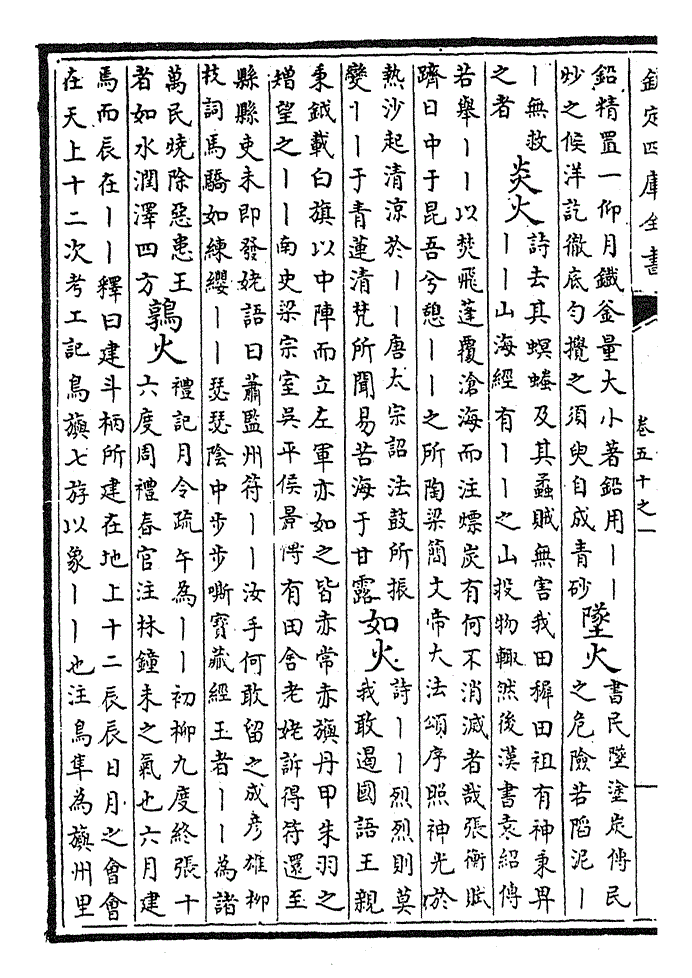 欽定四庫全書
卷五十之一
鉛精置一仰月鐵釜量大小著鉛用丨丨
妙之候洋訖徹底勺攪之須臾自成青砂
墜火
書民墜塗炭傳民
之危險若陷泥丨
丨無救
之者
炎火
詩去其螟螣及其蟊賊無害我田穉田祖有神秉畀
丨丨山海經有丨丨之山投物輒然後漢書袁紹傳
若舉丨丨以焚飛蓬覆滄海而注熛炭有何不消滅者哉張衡賦
躋日中于昆吾兮憩丨丨之所陶梁簡文帝大法頌序照神光於
熱沙起清涼於丨丨唐太宗詔法鼓所振
變丨丨于青蓮清梵所聞易苦海于甘露
如火
詩丨丨烈烈則莫
我敢遏國語王親
秉鉞載白旗以中陣而立左軍亦如之皆赤常赤旟丹甲朱羽之
矰望之丨丨南史梁宗室吳平侯景傳有田舍老姥訴得符還至
縣縣吏未即發姥語曰蕭監州符丨丨汝手何敢留之成彥雄柳
枝詞馬驕如練纓丨丨瑟瑟陰中步步嘶寶藏經王者丨丨為諸
萬民燒除惡患王
者如水潤澤四方
鶉火
禮記月令疏午為丨丨初柳九度終張十
六度周禮春官注林鐘未之氣也六月建
焉而辰在丨丨釋曰建斗柄所建在地上十二辰辰日月之會會
在天上十二次考工記鳥旟七斿以象丨丨也注鳥隼為旟州里